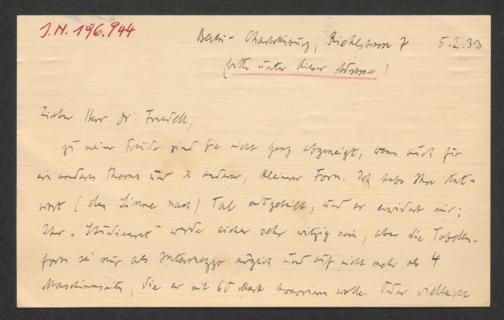 J.N. 196.944
Berlin-Charlottenburg, Riehlstrasse 7 5.2.33
(bitte unter dieser Adresse!)
Lieber Herr Dr. Friedell,
zu meiner Freude sind Sie nicht ganz abgeneigt, wenn auch für
ein anderes Thema und in anderer, kleiner Form. Ich habe Ihre Ant-
wort (dem Sinne nach) Tal mitgeteilt, und er erwidert mir:
Ihr „ " werde sicher sehr witzig sein, aber die
form sei nur als Intermezzo möglich und auf nicht mehr als 4
Maschinenseiten, die er mit 60 Mark honorieren wolle. Oder vielleicht